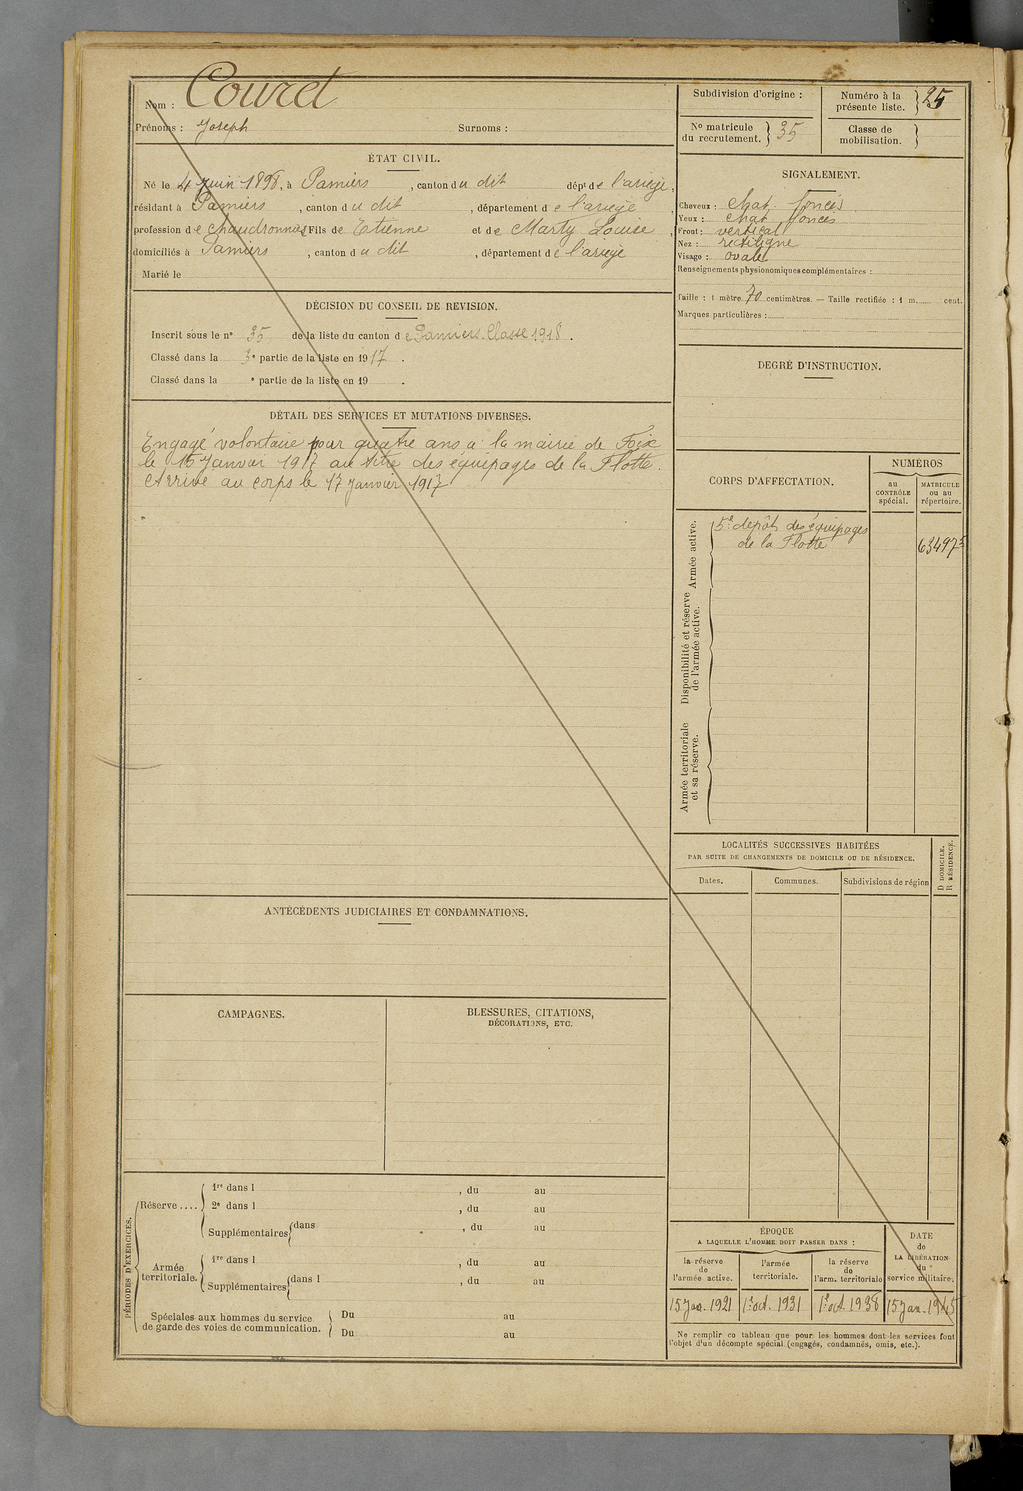 Nom : Couret
Prénoms : Joseph Surnoms :
ÉTAT CIVIL.
Né le 4 Juin 1898, à Pamiers, canton du dit dépt de l'ariège,
résidant à Pamiers, canton du dit, département de l'ariège,
profession de chaudronnier Fils de Etienne et de Marty Louise,
domiciliés à Pamiers, canton du dit, département de l'ariège
Marié le
DÉCISION DU CONSEIL DE REVISION.
Inscrit sous le n° 35 de la liste du canton de Pamiers. Classe 1918.
Classé dans la 3e partie de la liste en 1917.
Classé dans la e partie de la liste en 19 .
DÉTAIL DES SERVICES ET MUTATIONS DIVERSES.
Engagé volontaire pour quatre ans à la mairie de Foix
le 15 Janvier 1917 au titre des équipages de la Flotte.
Arrivé au corps le 17 janvier 1917
ANTÉCÉDENTS JUDICIAIRES ET CONDAMNATIONS.
CAMPAGNES.
BLESSURES, CITATIONS,
DÉCORATIONS, ETC.
PÉRIODES D'EXERCICES.
Réserve ....
1re dans l , du au
2e dans l , du au
Supplémentaires dans , du au
Armée
territoriale.
1re dans l , du au
Supplémentaires dans l , du au
Spéciales aux hommes du service
de garde des voies de communication.
Du au
Du au
Subdivision d'origine :
Numéro à la
présente liste. 25
No matricule
du recrutement. 35
Classe de
mobilisation.
SIGNALEMENT.
Cheveux : chat. foncés
Yeux : chat foncés
Front : vertical
Nez : rectiligne
Visage : ovale
Renseignements physionomiques complémentaires :
Taille : 1 mètre 70 centimètres. — Taille rectifiée : 1 m. cent.
Marques particulières :
DEGRÉ D'INSTRUCTION.
CORPS D'AFFECTATION.
NUMÉROS
au
CONTRÔLE
spécial.
MATRICULE
ou au
répertoire.
Armée active.
5e dépôt des équipages
de la Flotte
63497
Disponibilité et réserve
de l'armée active.
Armée territoriale
et sa réserve.
LOCALITÉS SUCCESSIVES HABITÉES
PAR SUITE DE CHANGEMENTS DE DOMICILE OU DE RÉSIDENCE.
D DOMICILE.
R RÉSIDENCE.
Dates. Communes. Subdivisions de région
ÉPOQUE
A LAQUELLE L'HOMME DOIT PASSER DANS :
DATE
de
LA LIBÉRATION
du
service militaire.
la réserve
de
l'armée active.
l'armée
territoriale.
la réserve
de
l'arm. territoriale
15 Jan. 1921 1er oct. 1931 1er oct. 1938 15 Jan. 1945
Ne remplir ce tableau que pour les hommes dont les services font
l'objet d'un décompte spécial (engagés, condamnés, omis, etc.).